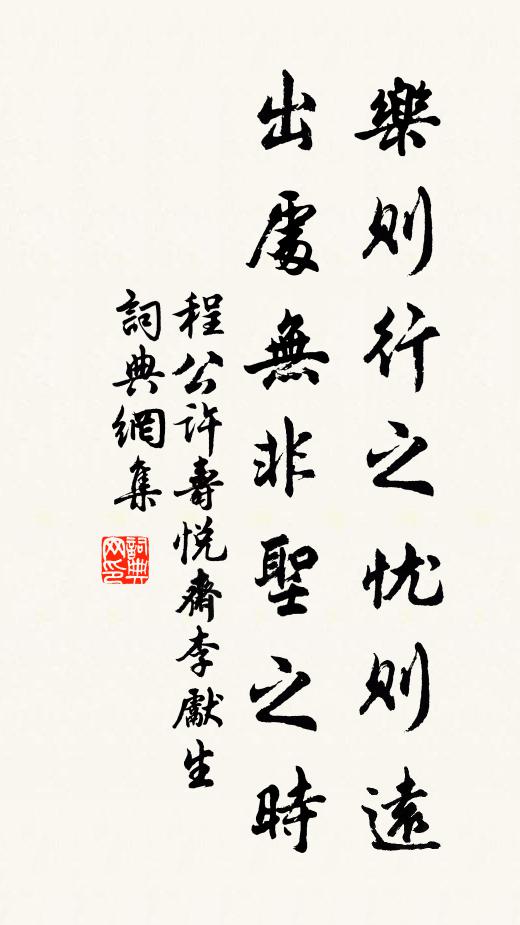 樂則行之忧則遠
出處無非聖之時
程公許壽悦齋李獻生
詞典網集
詞典网印